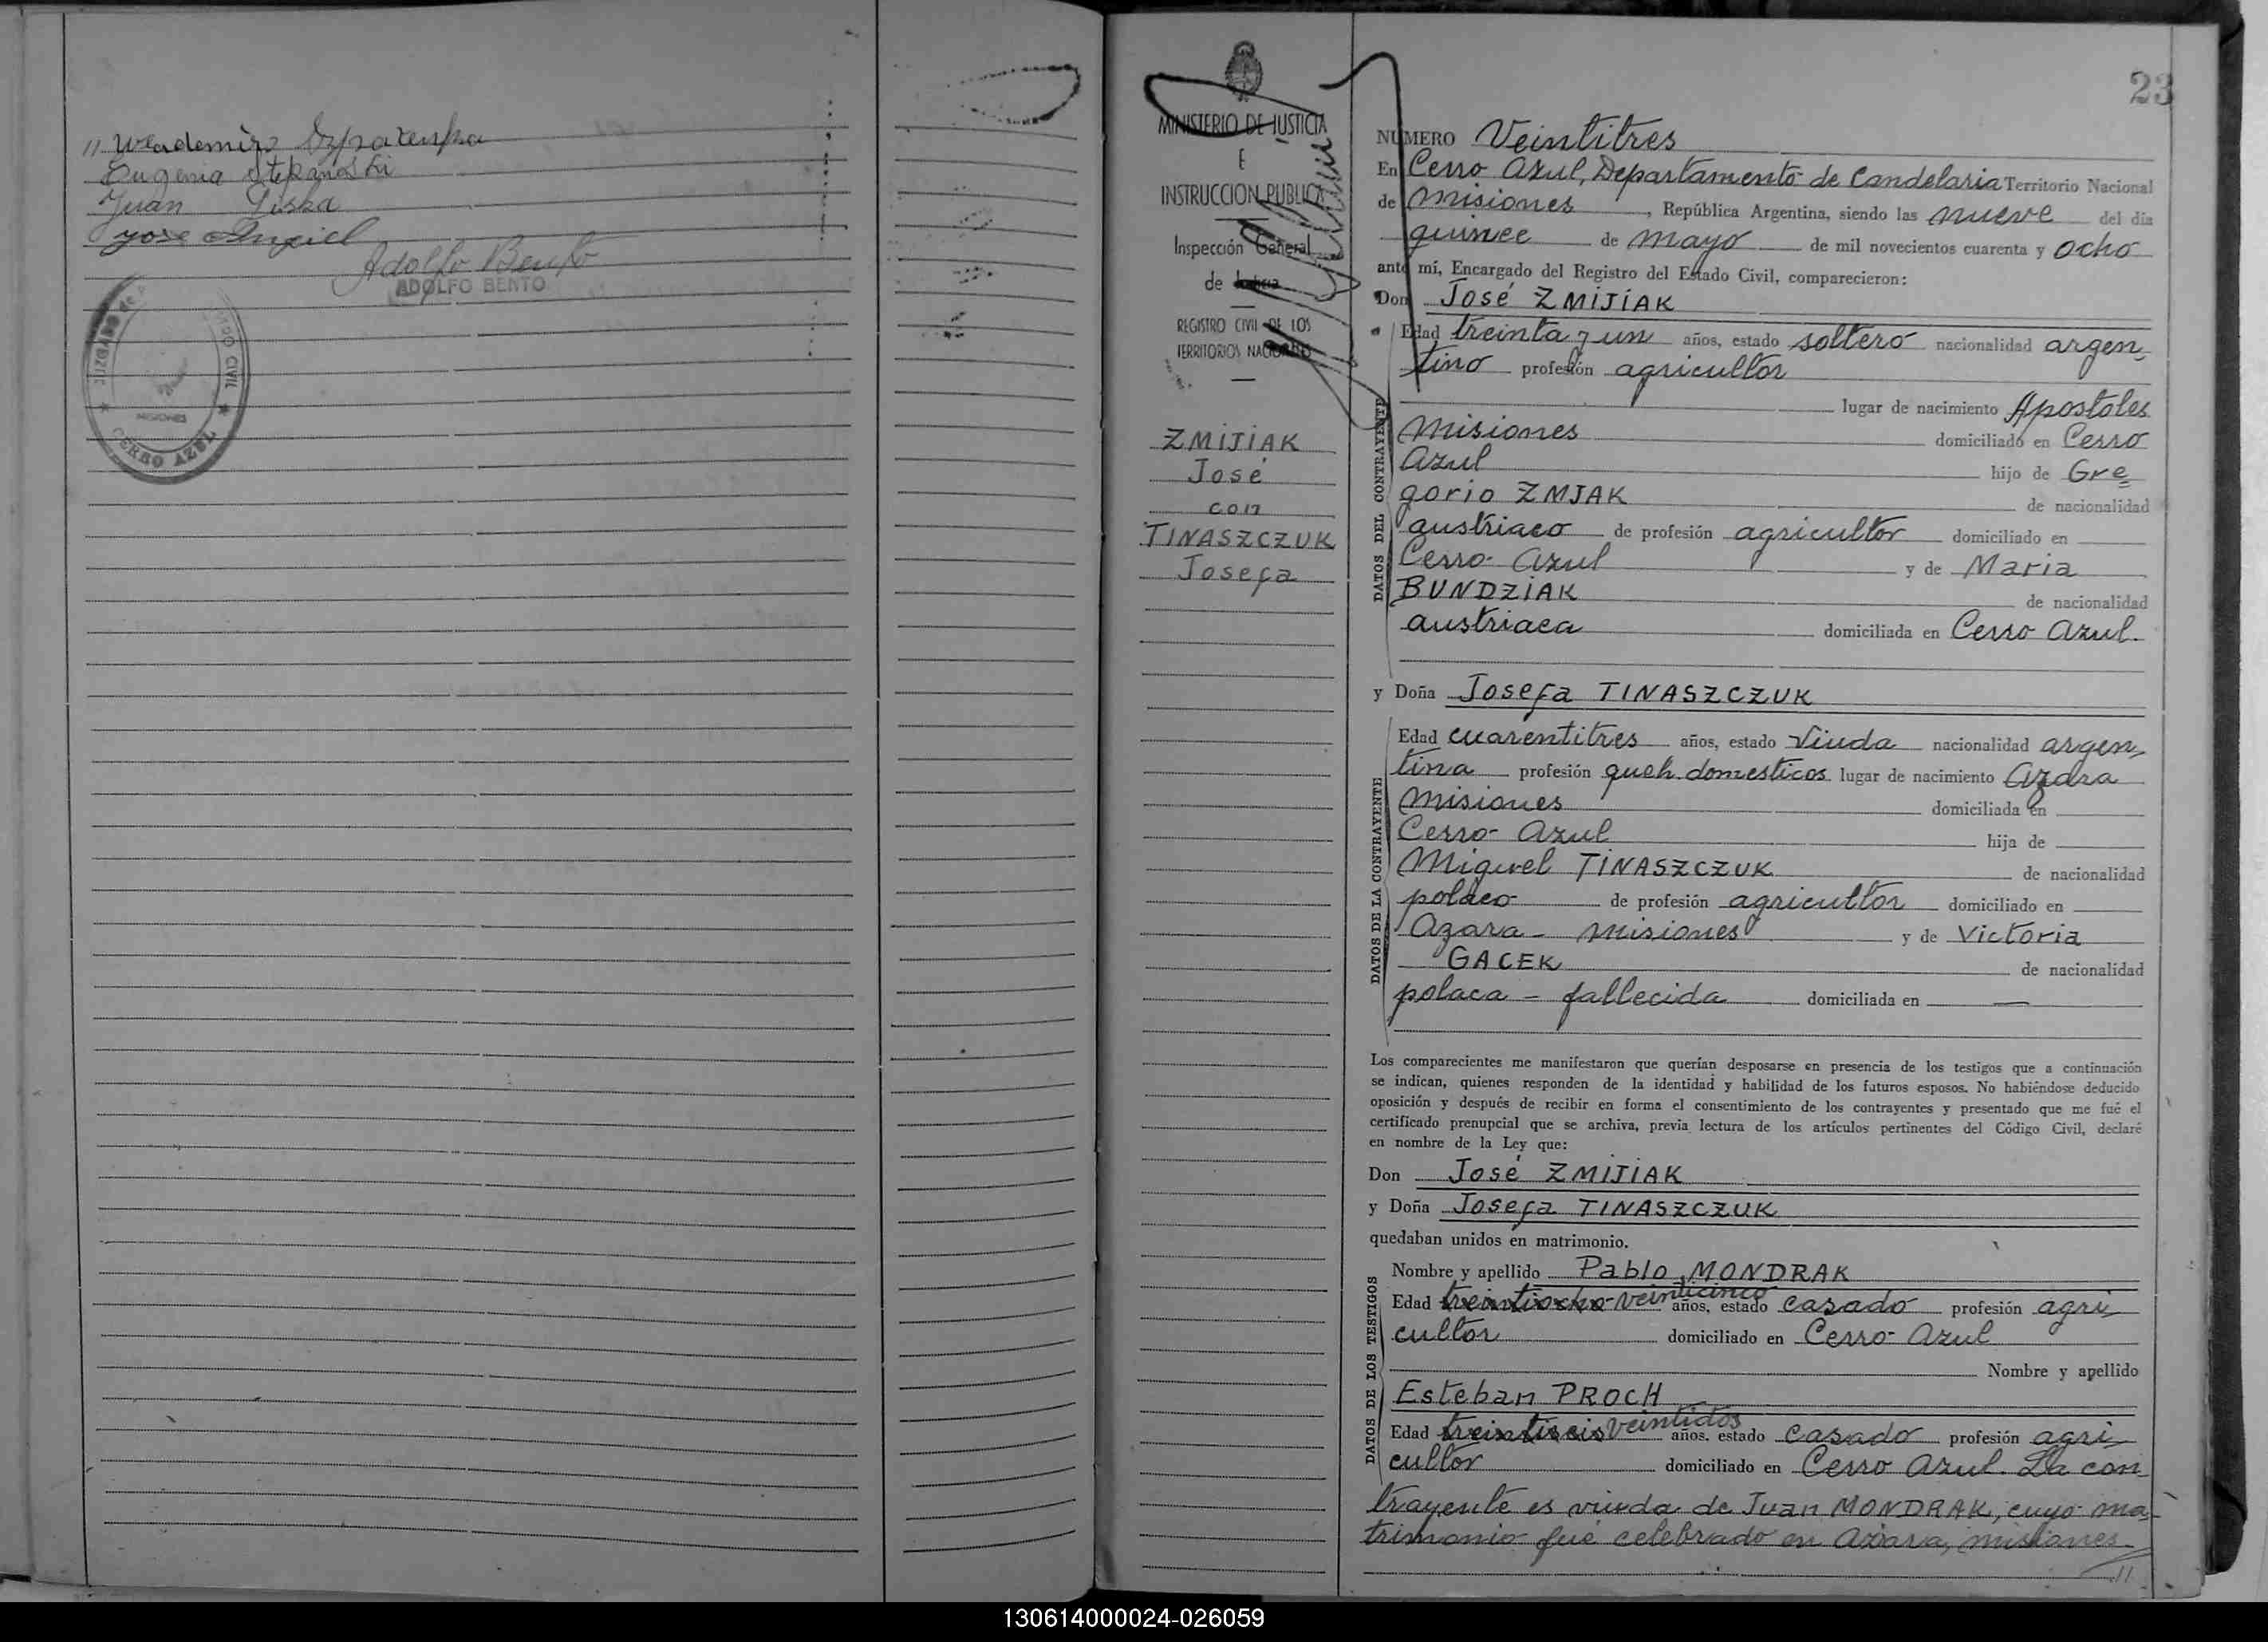 // Wlademiro
Eugenia Stepanoski
Juan Liska
José
Adolfo Bento
ADOLFO BENTO
JUZGADO de
CIVIL
MISIONES
CERRO AZUL
MINISTERIO DE JUSTICIA
E
INSTRUCCION PUBLICA
Inspección General
de Justicia
REGISTRO CIVIL DE LOS
TERRITORIOS NACIONALES
ZMIJIAK
José
con
TINASZCZUK
Josefa
23
NUMERO Veintitres
En Cerro Azul, Departamento de Candelaria Territorio Nacional
de Misiones, República Argentina, siendo las nueve del día
quince de mayo de mil novecientos cuarenta y ocho
ante mí, Encargado del Registro del Estado Civil, comparecieron:
Don José ZMIJIAK
DATOS DEL CONTRAYENTE
Edad treinta y un años, estado soltero nacionalidad argen-
tino profesión agricultor
lugar de nacimiento Apostoles
Misiones domiciliado en Cerro
Azul hijo de Gre=
gorio ZMJAK de nacionalidad
austriaco de profesión agricultor domiciliado en
Cerro Azul y de Maria
BUNDZIAK de nacionalidad
austriaca domiciliada en Cerro Azul.
y Doña Josefa TINASZCZUK
DATOS DE LA CONTRAYENTE
Edad cuarentitres años, estado Viuda nacionalidad argen-
tina profesión queh. domesticos lugar de nacimiento Azara
Misiones domiciliada en
Cerro Azul hija de
Miguel TINASZCZUK de nacionalidad
polaco de profesión agricultor domiciliado en
Azara - Misiones y de Victoria
GACEK de nacionalidad
polaca - fallecida domiciliada en —
Los comparecientes me manifestaron que querían desposarse en presencia de los testigos que a continuación
se indican, quienes responden de la identidad y habilidad de los futuros esposos. No habiéndose deducido
oposición y después de recibir en forma el consentimiento de los contrayentes y presentado que me fué el
certificado prenupcial que se archiva, previa lectura de los artículos pertinentes del Código Civil, declaré
en nombre de la Ley que:
Don José ZMIJIAK
y Doña Josefa TINASZCZUK
quedaban unidos en matrimonio.
DATOS DE LOS TESTIGOS
Nombre y apellido Pablo MONDRAK
Edad treintiocho veinticinco años, estado casado profesión agri-
cultor domiciliado en Cerro Azul
Nombre y apellido
Esteban PROCH
Edad treintiseis veintidos años, estado casado profesión agri-
cultor domiciliado en Cerro Azul. La con-
trayente es viuda de Juan MONDRAK, cuyo ma-
trimonio fué celebrado en Azara, Misiones.
//
130614000024-026059